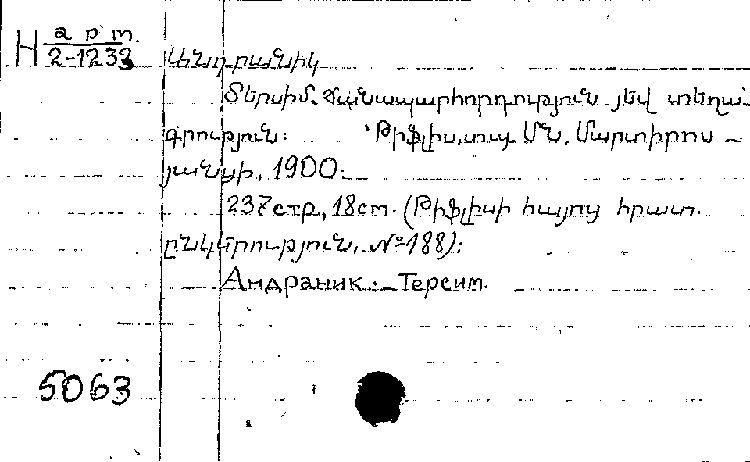 H арт.
2-1233
Անդրանիկ
Տերսիմ. Ճանապարհորդություն յեվ տեղա-
գրություն: Թիֆլիս, տպ. Մն. Մարտիրոս-
յանցի, 1900.
237стр., 18cm. (Թիֆլիսի հայոց հրատ.
ընկերություն, №188):
Андраник: Терсим.
5063